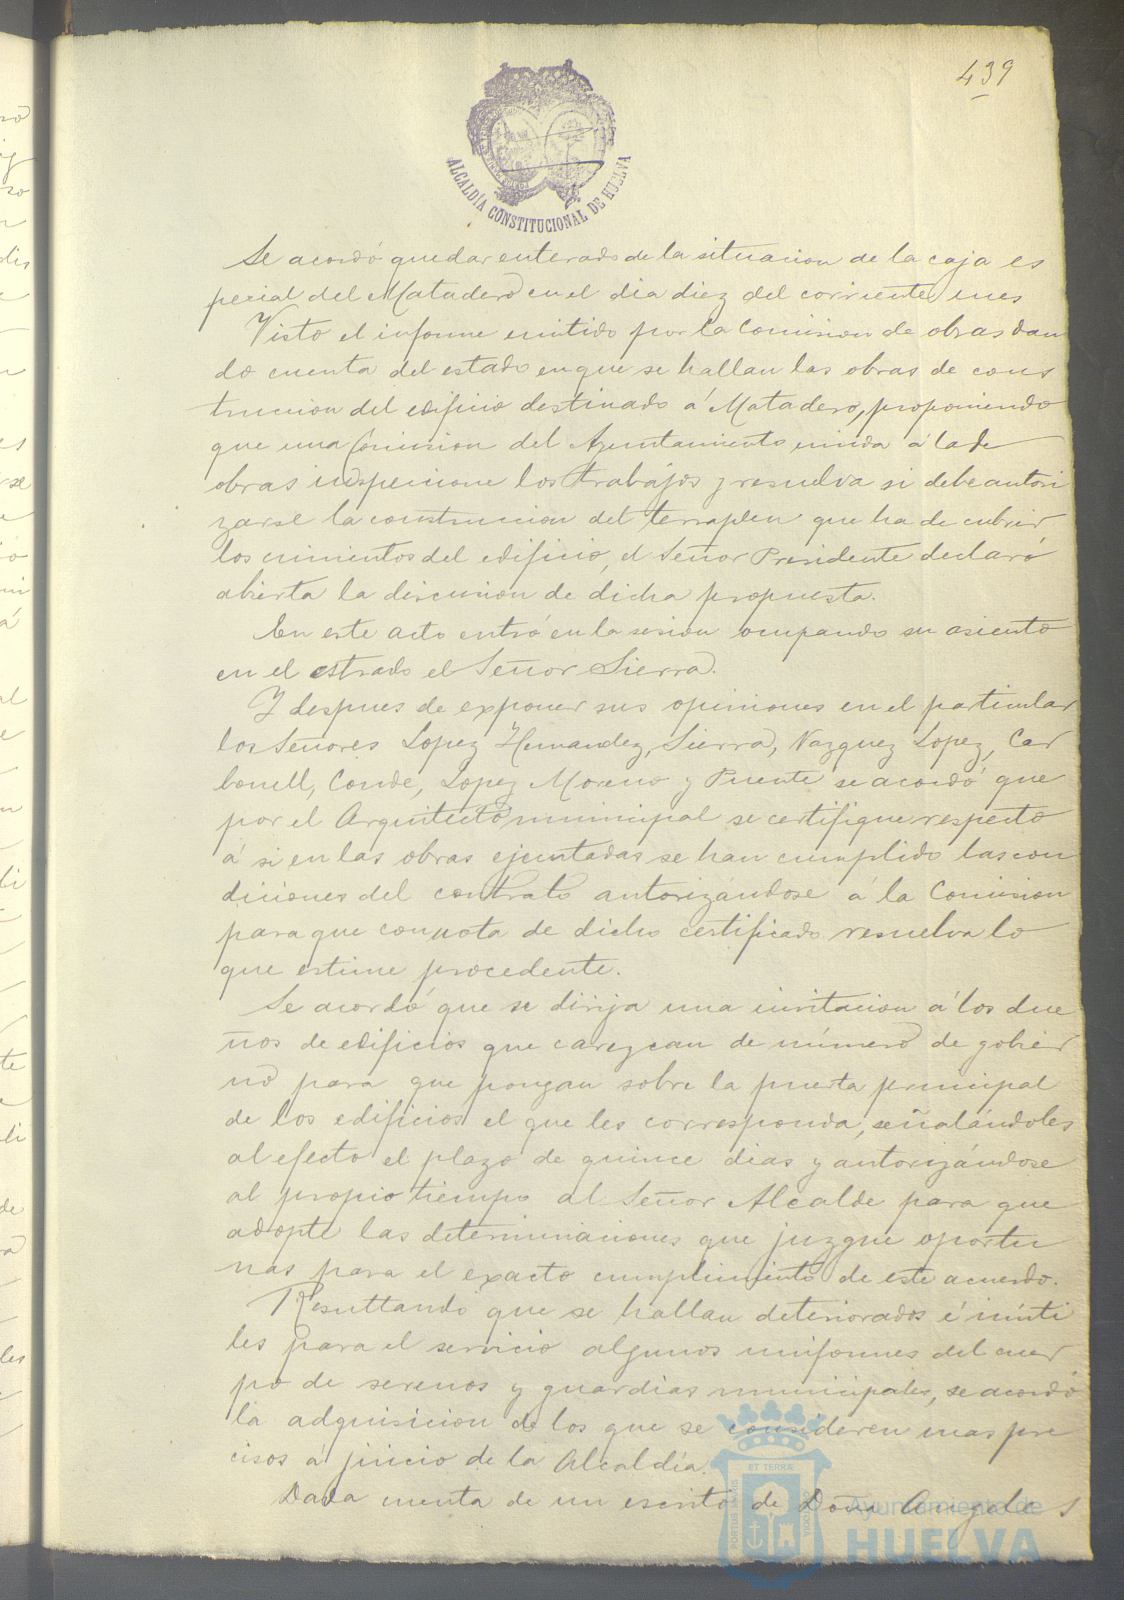 439
ALCALDÍA CONSTITUCIONAL DE HUELVA
Se acordó quedar enterado de la situacion de la caja es
pecial del Matadero en el dia diez del corriente mes
Visto el informe emitido por la Comision de obras dan
do cuenta del estado en que se hallan las obras de cons
truccion del edificio destinado á Matadero, proponiendo
que una Comision del Ayuntamiento unida á la de
obras inspeccione los trabajos y resuelva si debe autori
zarse la construccion del terraplen que ha de cubrir
los cimientos del edificio, el Señor Presidente declaró
abierta la discusion de dicha propuesta.
En este acto entró en la sesion ocupando su asiento
en el estrado el Señor Sierra.
Y despues de exponer sus opiniones en el particular
los Señores Lopez Hernandez, Sierra, Vazquez Lopez, Car
bonell, Conde, Lopez Moreno y Puente se acordó que
por el Arquitecto municipal se certifique respecto
á si en las obras ejecutadas se han cumplido las con
diciones del contrato autorizándose á la Comision
para que con nota de dicho certificado resuelva lo
que estime procedente.
Se acordó que se dirija una invitacion á los due
ños de edificios que carezcan de número de gobier
no para que pongan sobre la puerta principal
de los edificios el que les corresponda, señalándoles
al efecto el plazo de quince dias y autorizándose
al propio tiempo al Señor Alcalde para que
adopte las determinaciones que juzgue oportu
nas para el exacto cumplimiento de este acuerdo.
Resultando que se hallan deteriorados é inúti
les para el servicio algunos uniformes del cuer
po de serenos y guardias municipales, se acordó
la adquisicion de los que se consideren mas pre
cisos á juicio de la Alcaldía.
Dada cuenta de un escrito de Doña Angeles
PORTUS MARIS
ET TERRAE
CUSTODIA
Ayuntamiento de
HUELVA